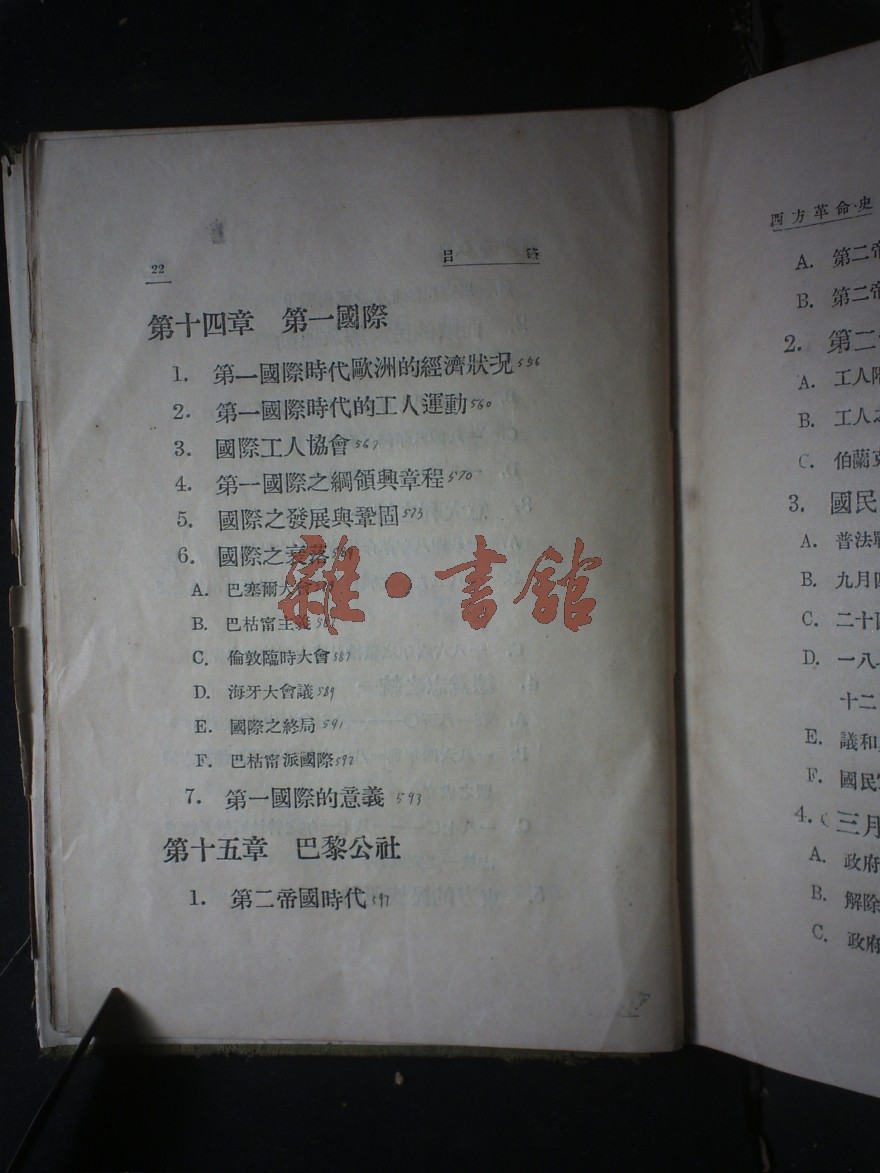 22
目 錄
第十四章 第一國際
1. 第一國際時代歐洲的經濟狀況 556
2. 第一國際時代的工人運動 560
3. 國際工人協會 567
4. 第一國際之綱領與章程 570
5. 國際之發展與鞏固 573
6. 國際之衰落
A. 巴塞爾大會
B. 巴枯甯主義
C. 倫敦臨時大會 587
D. 海牙大會議 589
E. 國際之終局 591
F. 巴枯甯派國際 592
7. 第一國際的意義 593
第十五章 巴黎公社
1. 第二帝國時代 597
雜·書館
西方革命史
A. 第二帝
B. 第二帝
2. 第二
A. 工人階
B. 工人之
C. 伯蘭克
3. 國民
A. 普法戰
B. 九月四
C. 二十四
D. 一八
十二
E. 議和
F. 國民
4. 三月
A. 政府
B. 解除
C. 政府